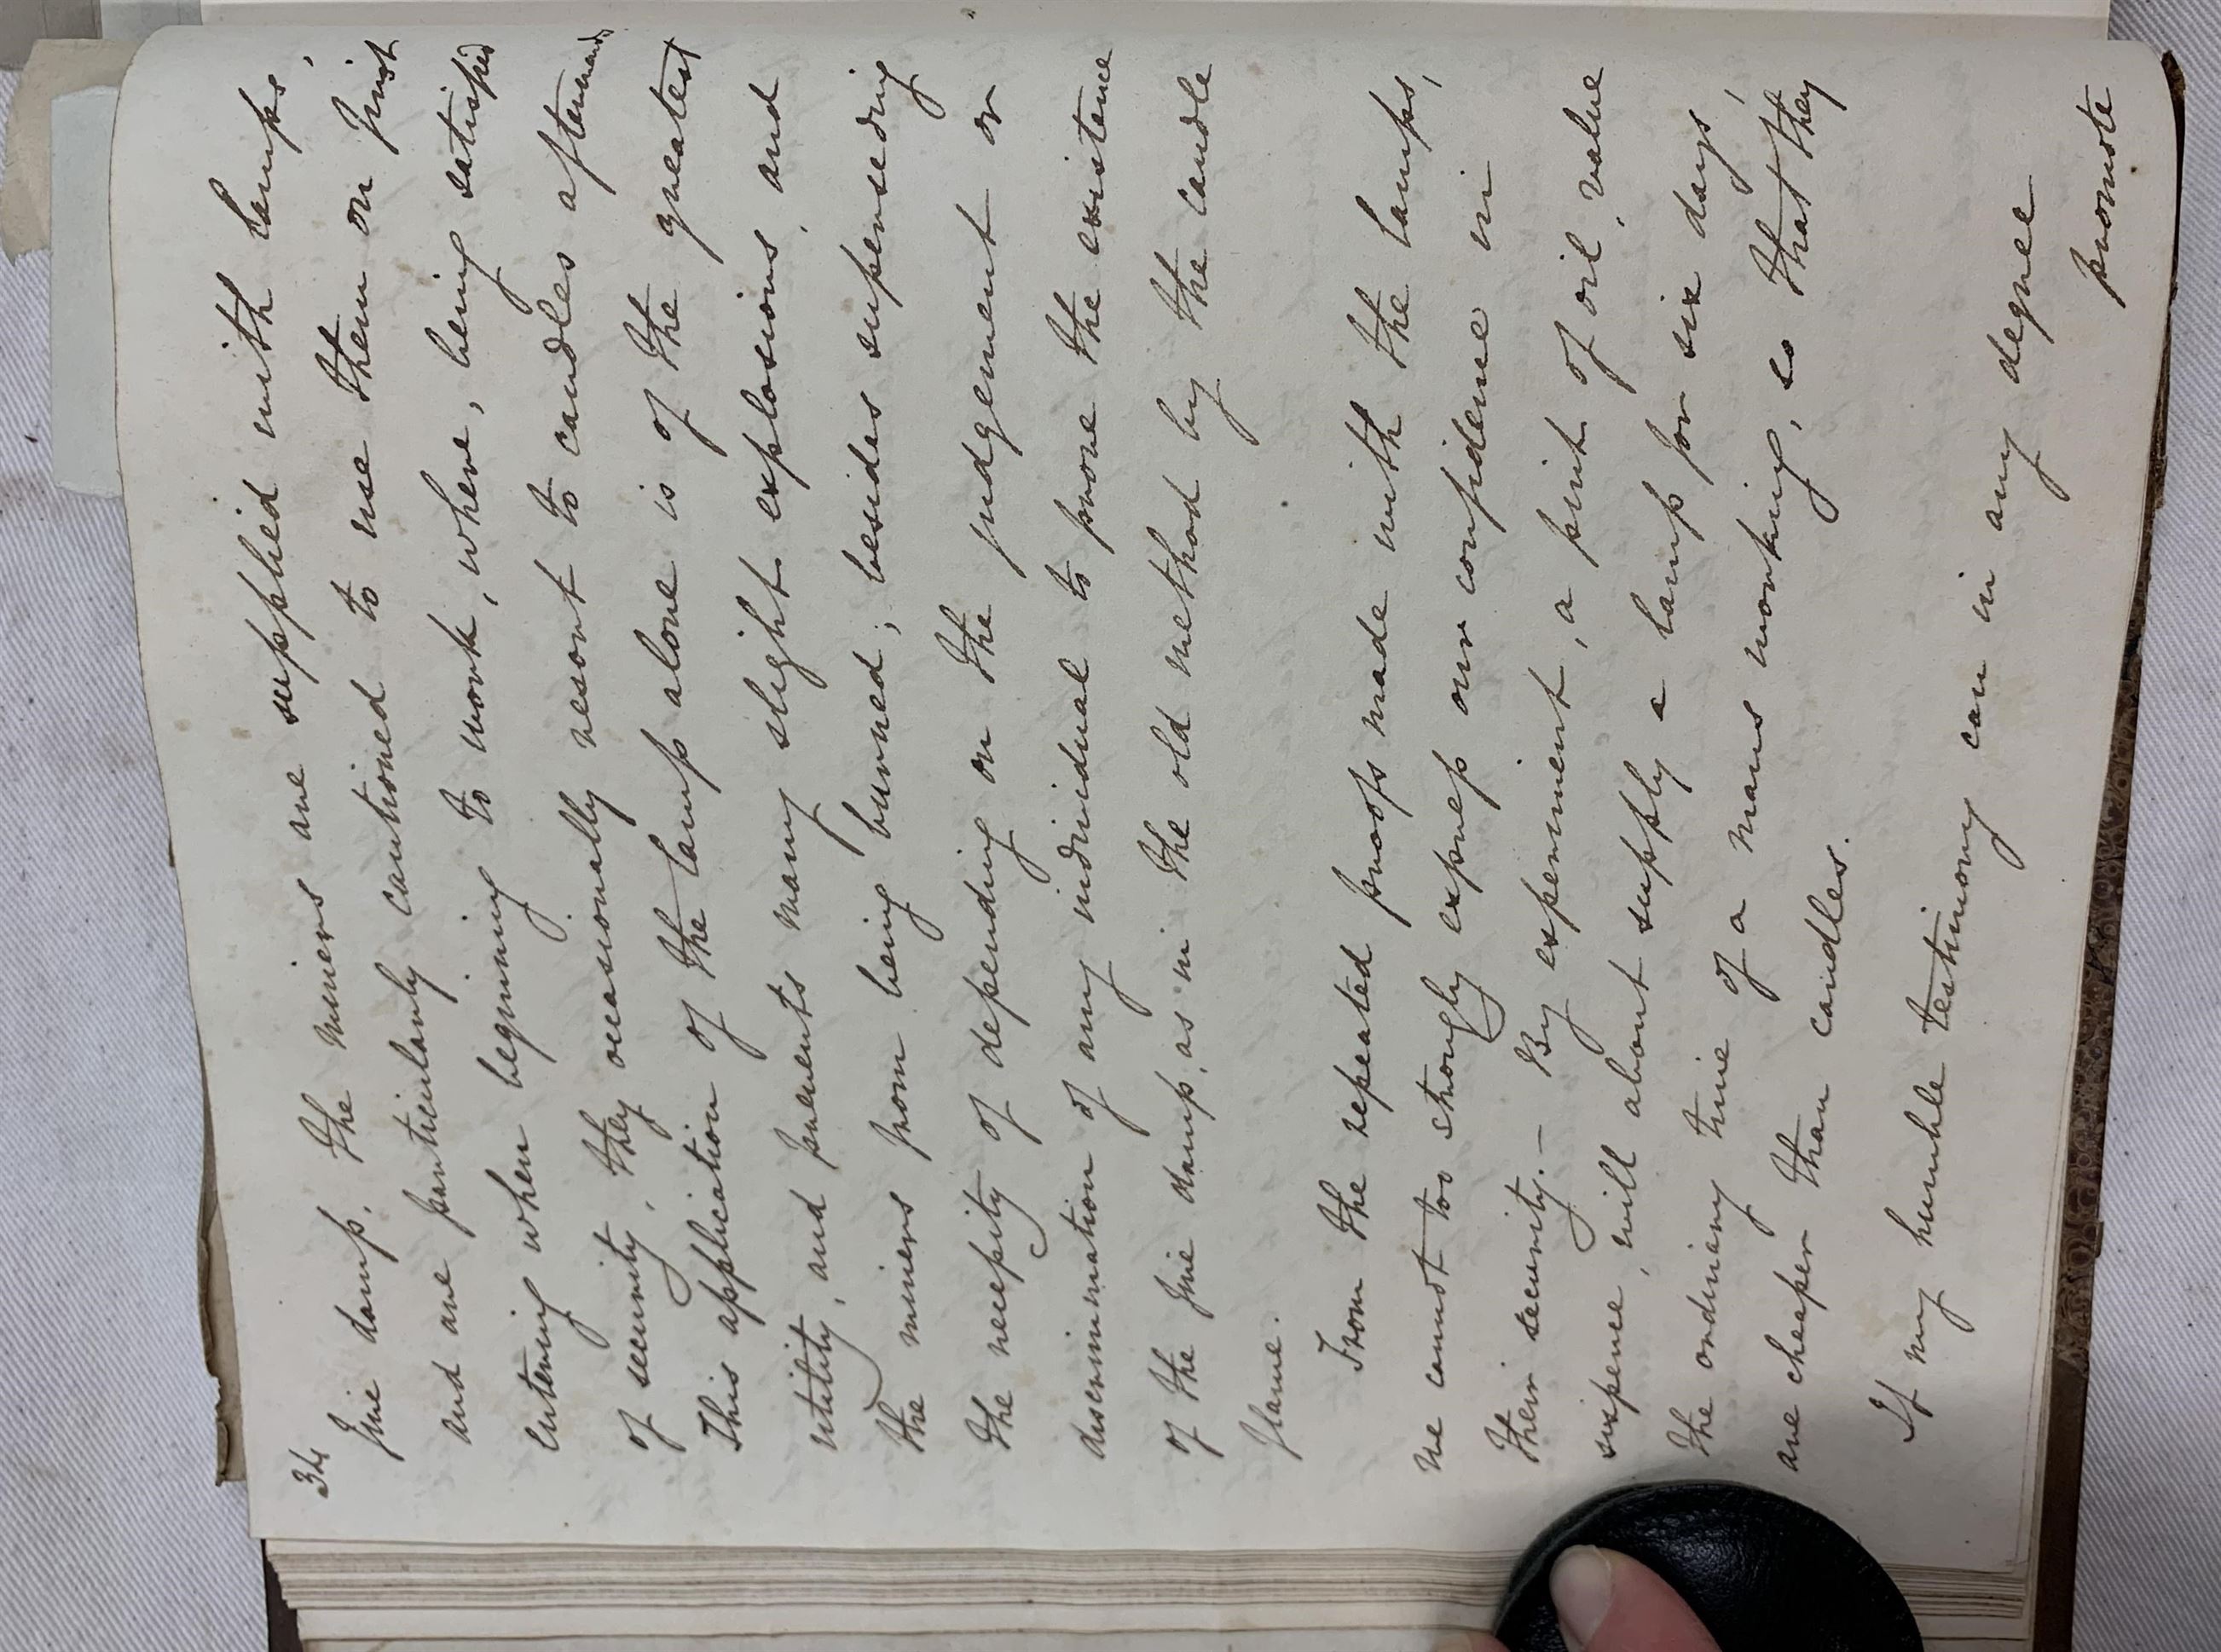 34
fire damp, the miners are supplied with lamps,
and are particularly cautioned to use them on first
entering when beginning to work, where, being satisfied
of security, they occasionally resort to candles afterwards
This application of the lamp alone is of the greatest
utility, and prevents many slight explosions, and
the miners from being burned; besides superseding
the necessity of depending on the judgement or
discrimination of any individual to prove the existence
of the fire damp, as in the old method by the candle
flame.
From the repeated proofs made with the lamps,
we cannot too strongly express our confidence in
their security. — By experiment, a pint of oil, value
sixpence, will about supply a lamp for six days,
the ordinary time of a mans working, so that they
are cheaper than candles.
If my humble testimony can in any degree
promote